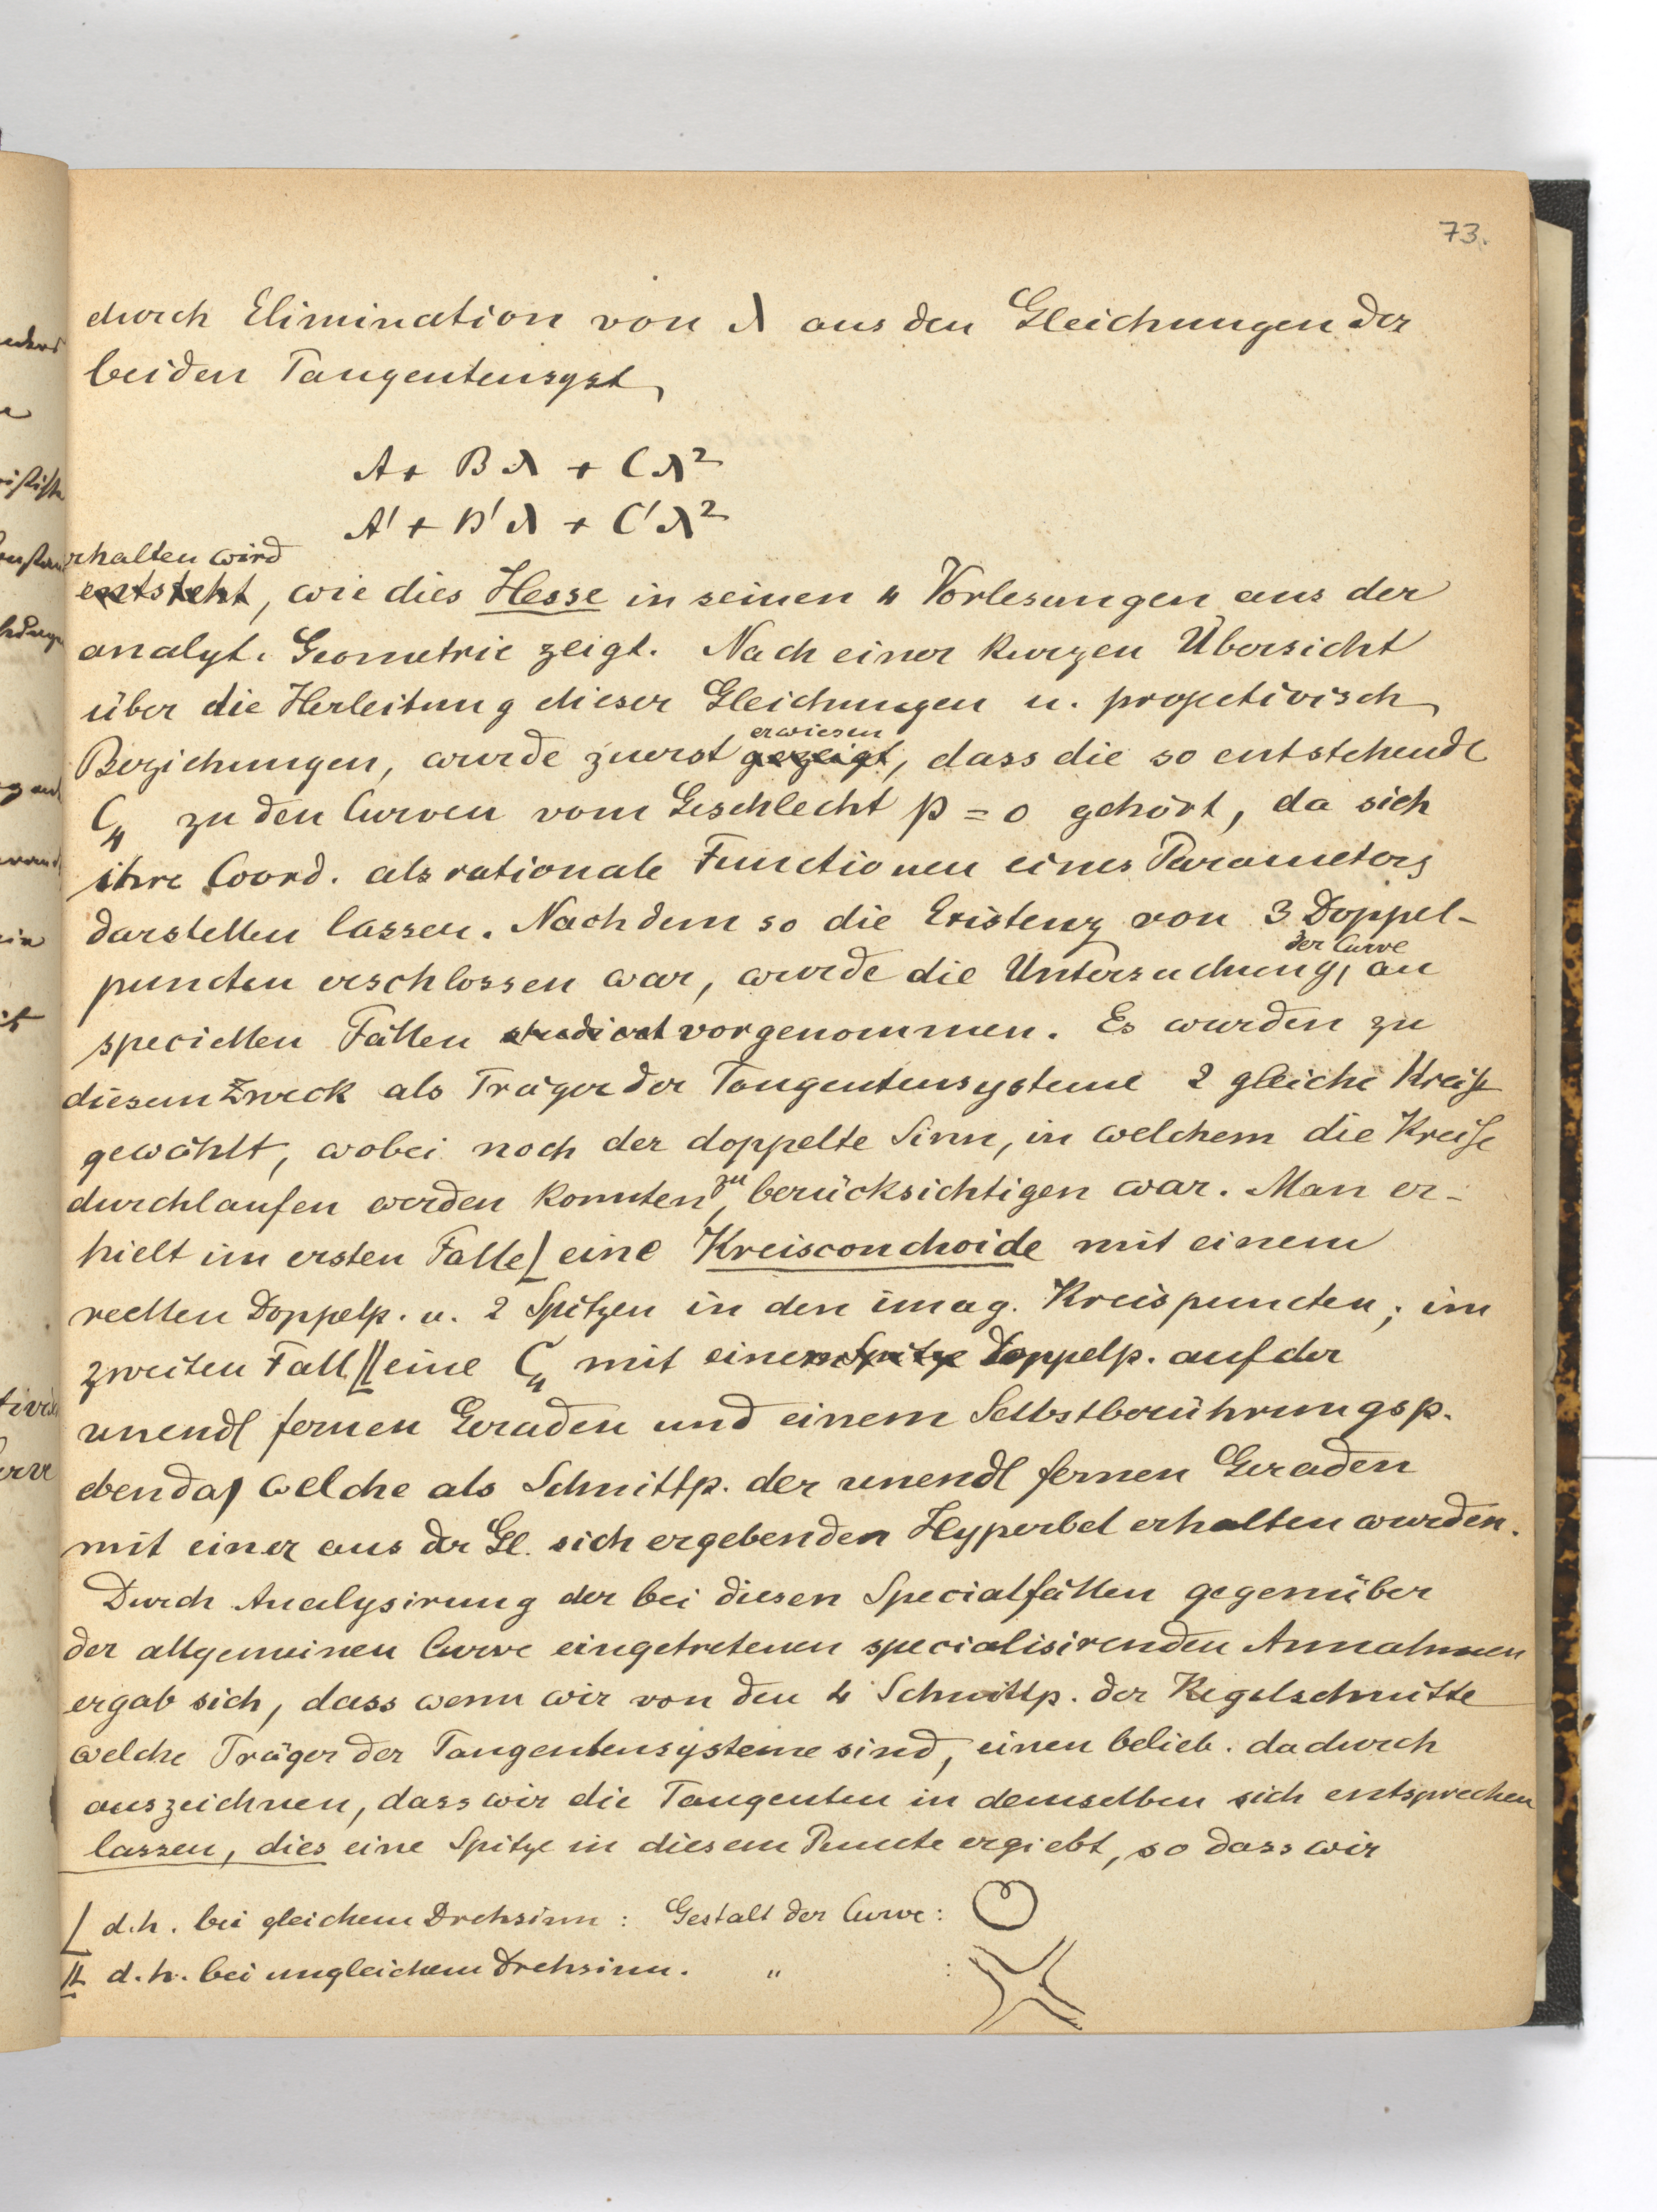 73.
durch Elimination von λ aus den Gleichungen der
beiden Tangentensyst.
A + Bλ + Cλ²
A' + B'λ + C'λ²
erhalten wird
entsteht, wie dies Hesse in seinen 4 Vorlesungen aus der
analyt. Geometrie zeigt. Nach einer kurzen Übersicht
über die Herleitung dieser Gleichungen u. projectivisch
erwiesen
Beziehungen, wurde zuerst gezeigt, dass die so entstehende
C₄ zu den Curven vom Geschlecht p = 0 gehört, da sich
ihre Coord. als rationale Functionen eines Parameters
darstellen lassen. Nachdem so die Existenz von 3 Doppel-
der Curve
puncten erschlossen war, wurde die Untersuchung, an
speciellen Fällen studiert vorgenommen. Es wurden zu
diesem Zweck als Träger der Tangentensysteme 2 gleiche Kreise
gewählt, wobei noch der doppelte Sinn, in welchem die Kreise
durchlaufen werden konnten, zu berücksichtigen war. Man er-
hielt im ersten Falle | eine Kreisconchoide mit einem
reellen Doppelp. u. 2 Spitzen in den imag. Kreispuncten; im
zweiten Fall || eine C₄ mit einem Spitze Doppelp. auf der
unendl fernen Geraden und einem Selbstberührungsp.
ebenda, welche als Schnittp. der unendl fernen Geraden
mit einer aus der Gl. sich ergebenden Hyperbel erhalten wurden.
Durch Analysirung der bei diesen Specialfällen gegenüber
der allgemeinen Curve eingetretenen specialisirenden Annahmen
ergab sich, dass wenn wir von den 4 Schnittp. der Kegelschnitte
welche Träger der Tangentensysteme sind, einen belieb. dadurch
auszeichnen, dass wir die Tangenten in demselben sich entsprechen
lassen, dies eine Spitze in diesem Puncte ergiebt, so dass wir
| d.h. bei gleichem Drehsinn: Gestalt der Curve:
|| d.h. bei ungleichem Drehsinn. " :